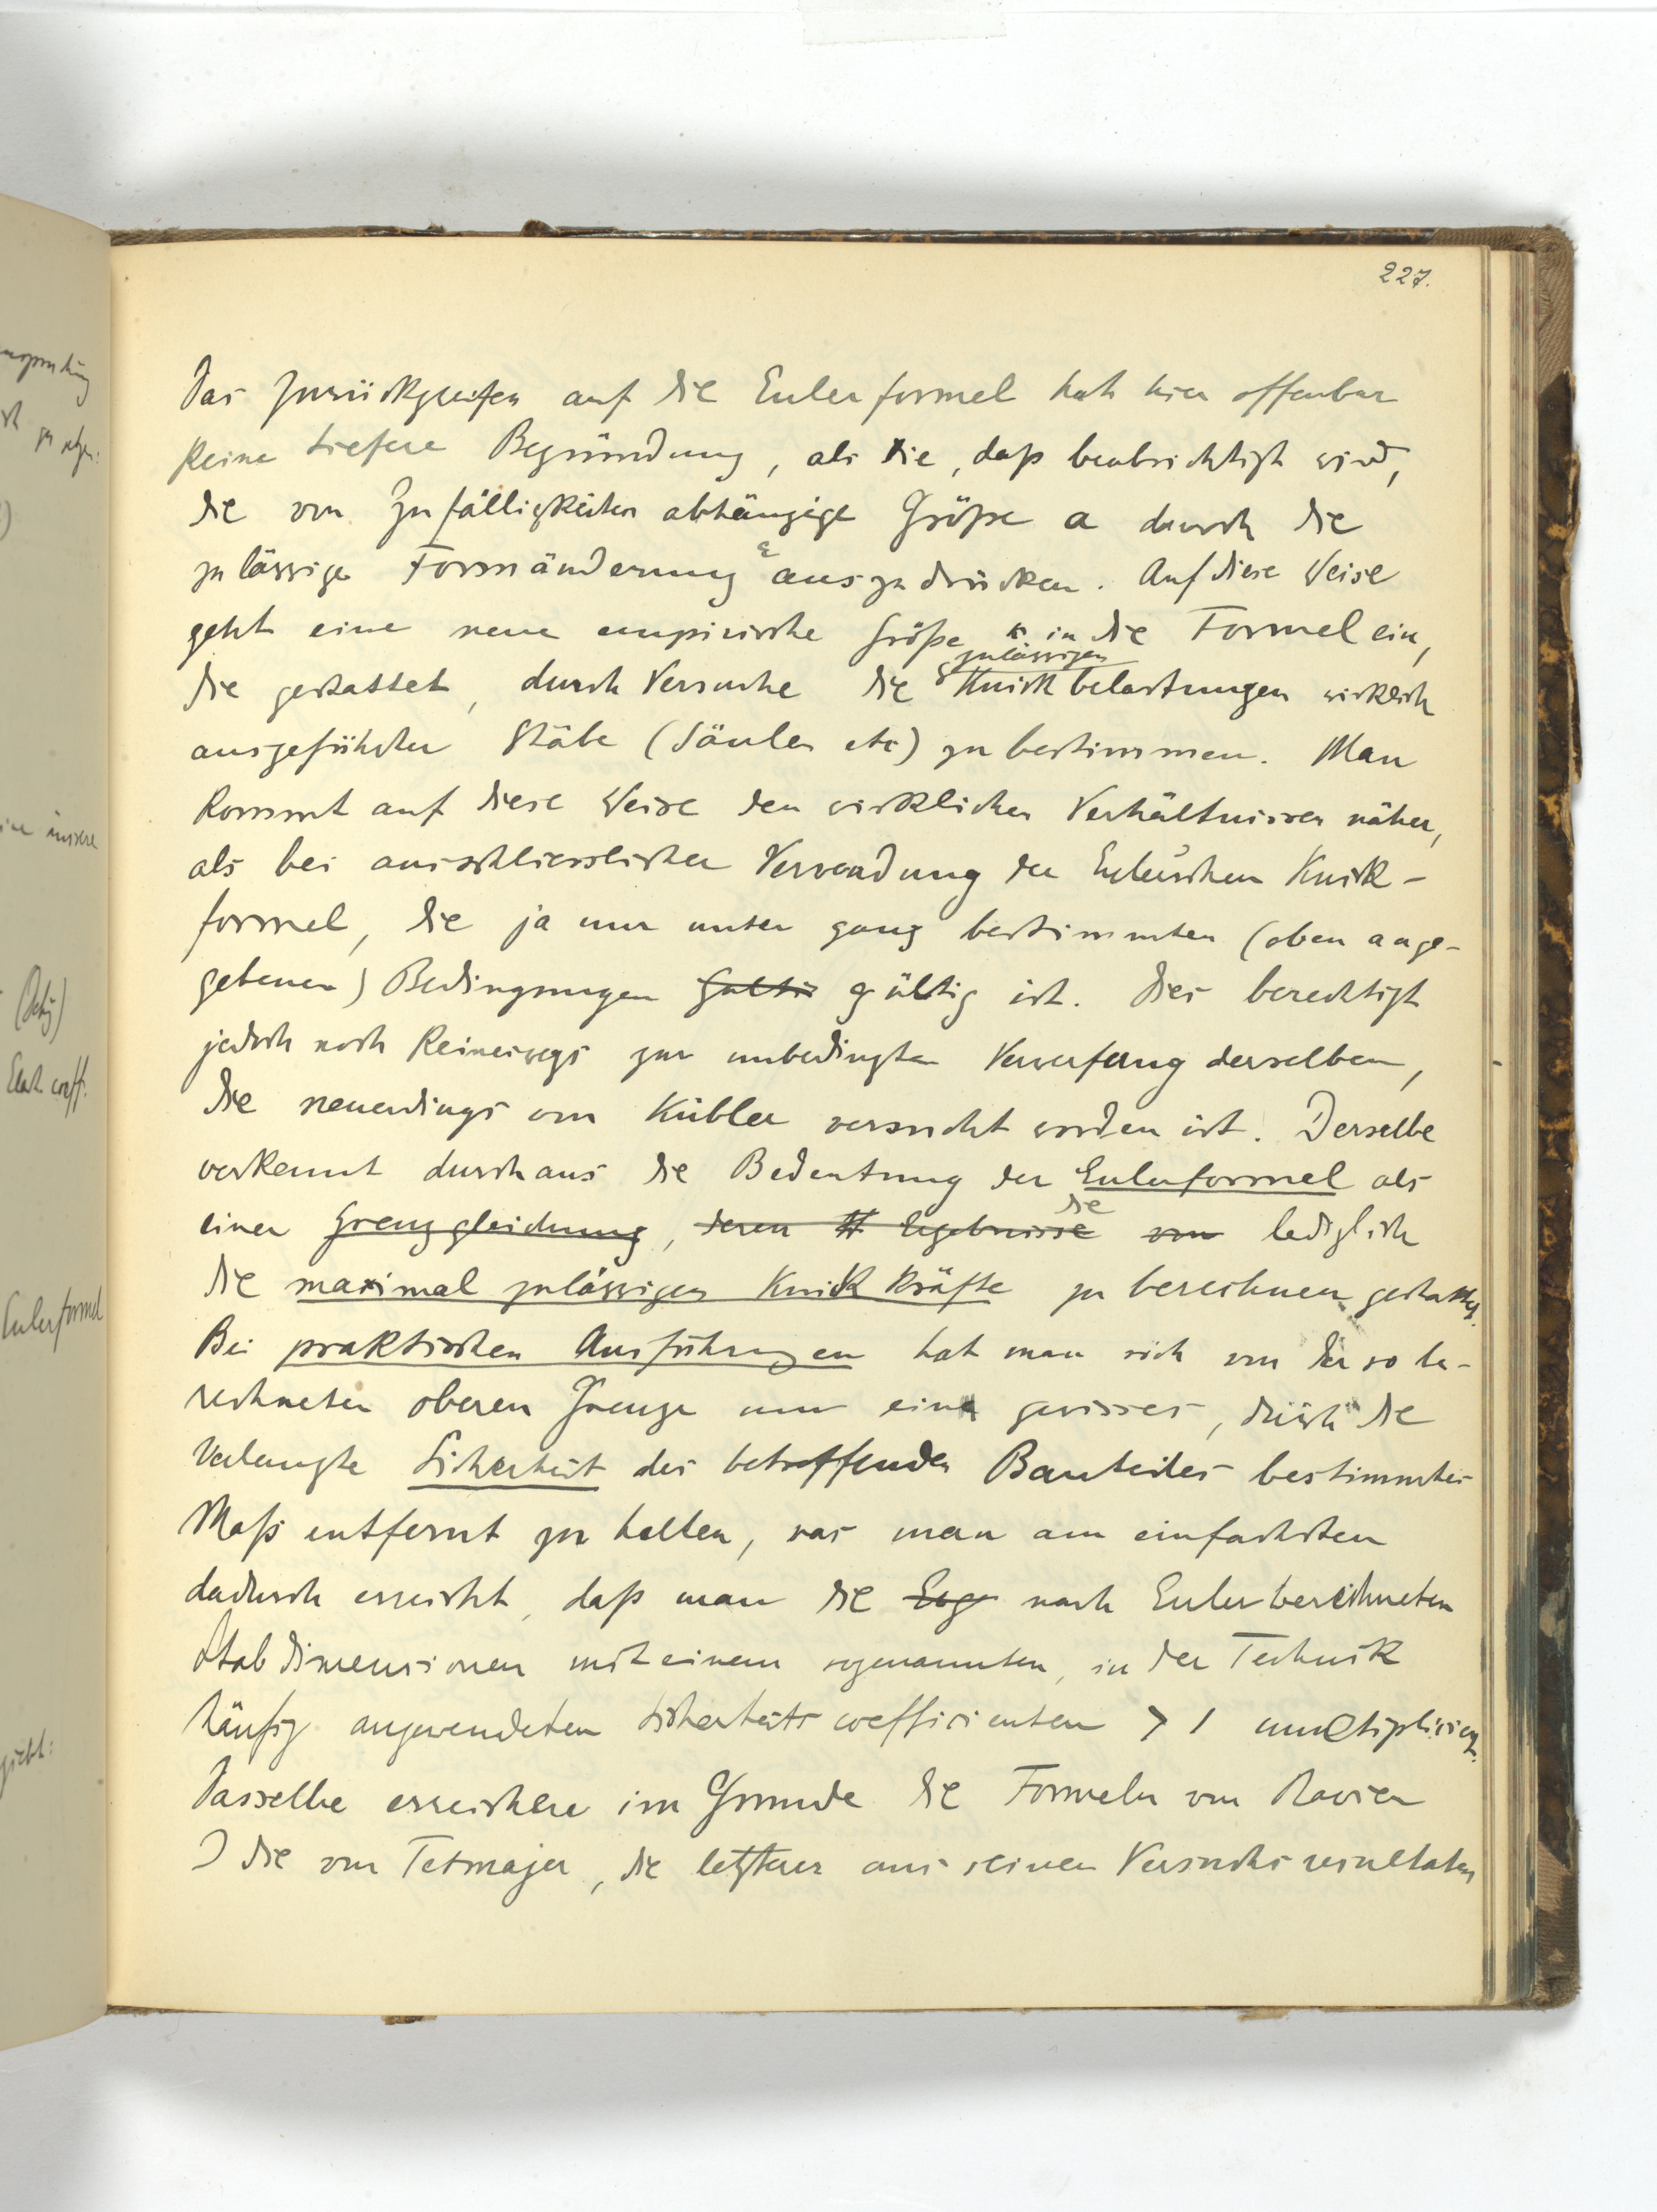 227.
Das Zurückgreifen auf die Eulerformel hat hier offenbar
keine tiefere Begründung, als die, daß beabsichtigt wird,
die von Zufälligkeiten abhängige Größe a durch die
zulässige Formänderung ε auszudrücken. Auf diese Weise
geht eine neue empirische Größe in die Formel ein,
die gestattet, durch Versuche die zulässigen Knickbelastungen wirklich
ausgeführter Stäbe (Säulen etc) zu bestimmen. Man
kommt auf diese Weise den wirklichen Verhältnissen näher,
als bei ausschliesslicher Verwendung der Euler'schen Knick-
formel, die ja nur unter ganz bestimmten (oben ange-
gebenen) Bedingungen gülti gültig ist. Dies berechtigt
jedoch noch keineswegs zur unbedingten Verwerfung derselben,
die neuerdings von Kübler versucht worden ist. Derselbe
verkennt durchaus die Bedeutung der Eulerformel als
einer Grenzgleichung, deren Ergebnisse die von lediglich
die maximal zulässigen Knickkräfte zu berechnen gestattet.
Bei praktischen Ausführungen hat man sich von der so be-
rechneten oberen Grenze um ein gewisses, durch die
verlangte Sicherheit des betreffenden Bauteiles bestimmtes
Maß entfernt zu halten, was man am einfachsten
dadurch erreicht, daß man die Erg nach Euler berechneten
Stabdimensionen mit einem sogenannten, in der Technik
häufig angewendeten Sicherheitscoefficienten > 1 multiplicirt.
Dasselbe erreichen im Grunde die Formeln von Navier
& die von Tetmajer, die letzterer aus seinen Versuchsresultaten
(Docu)
Elast. coeff.
Eulerformel
giebt: